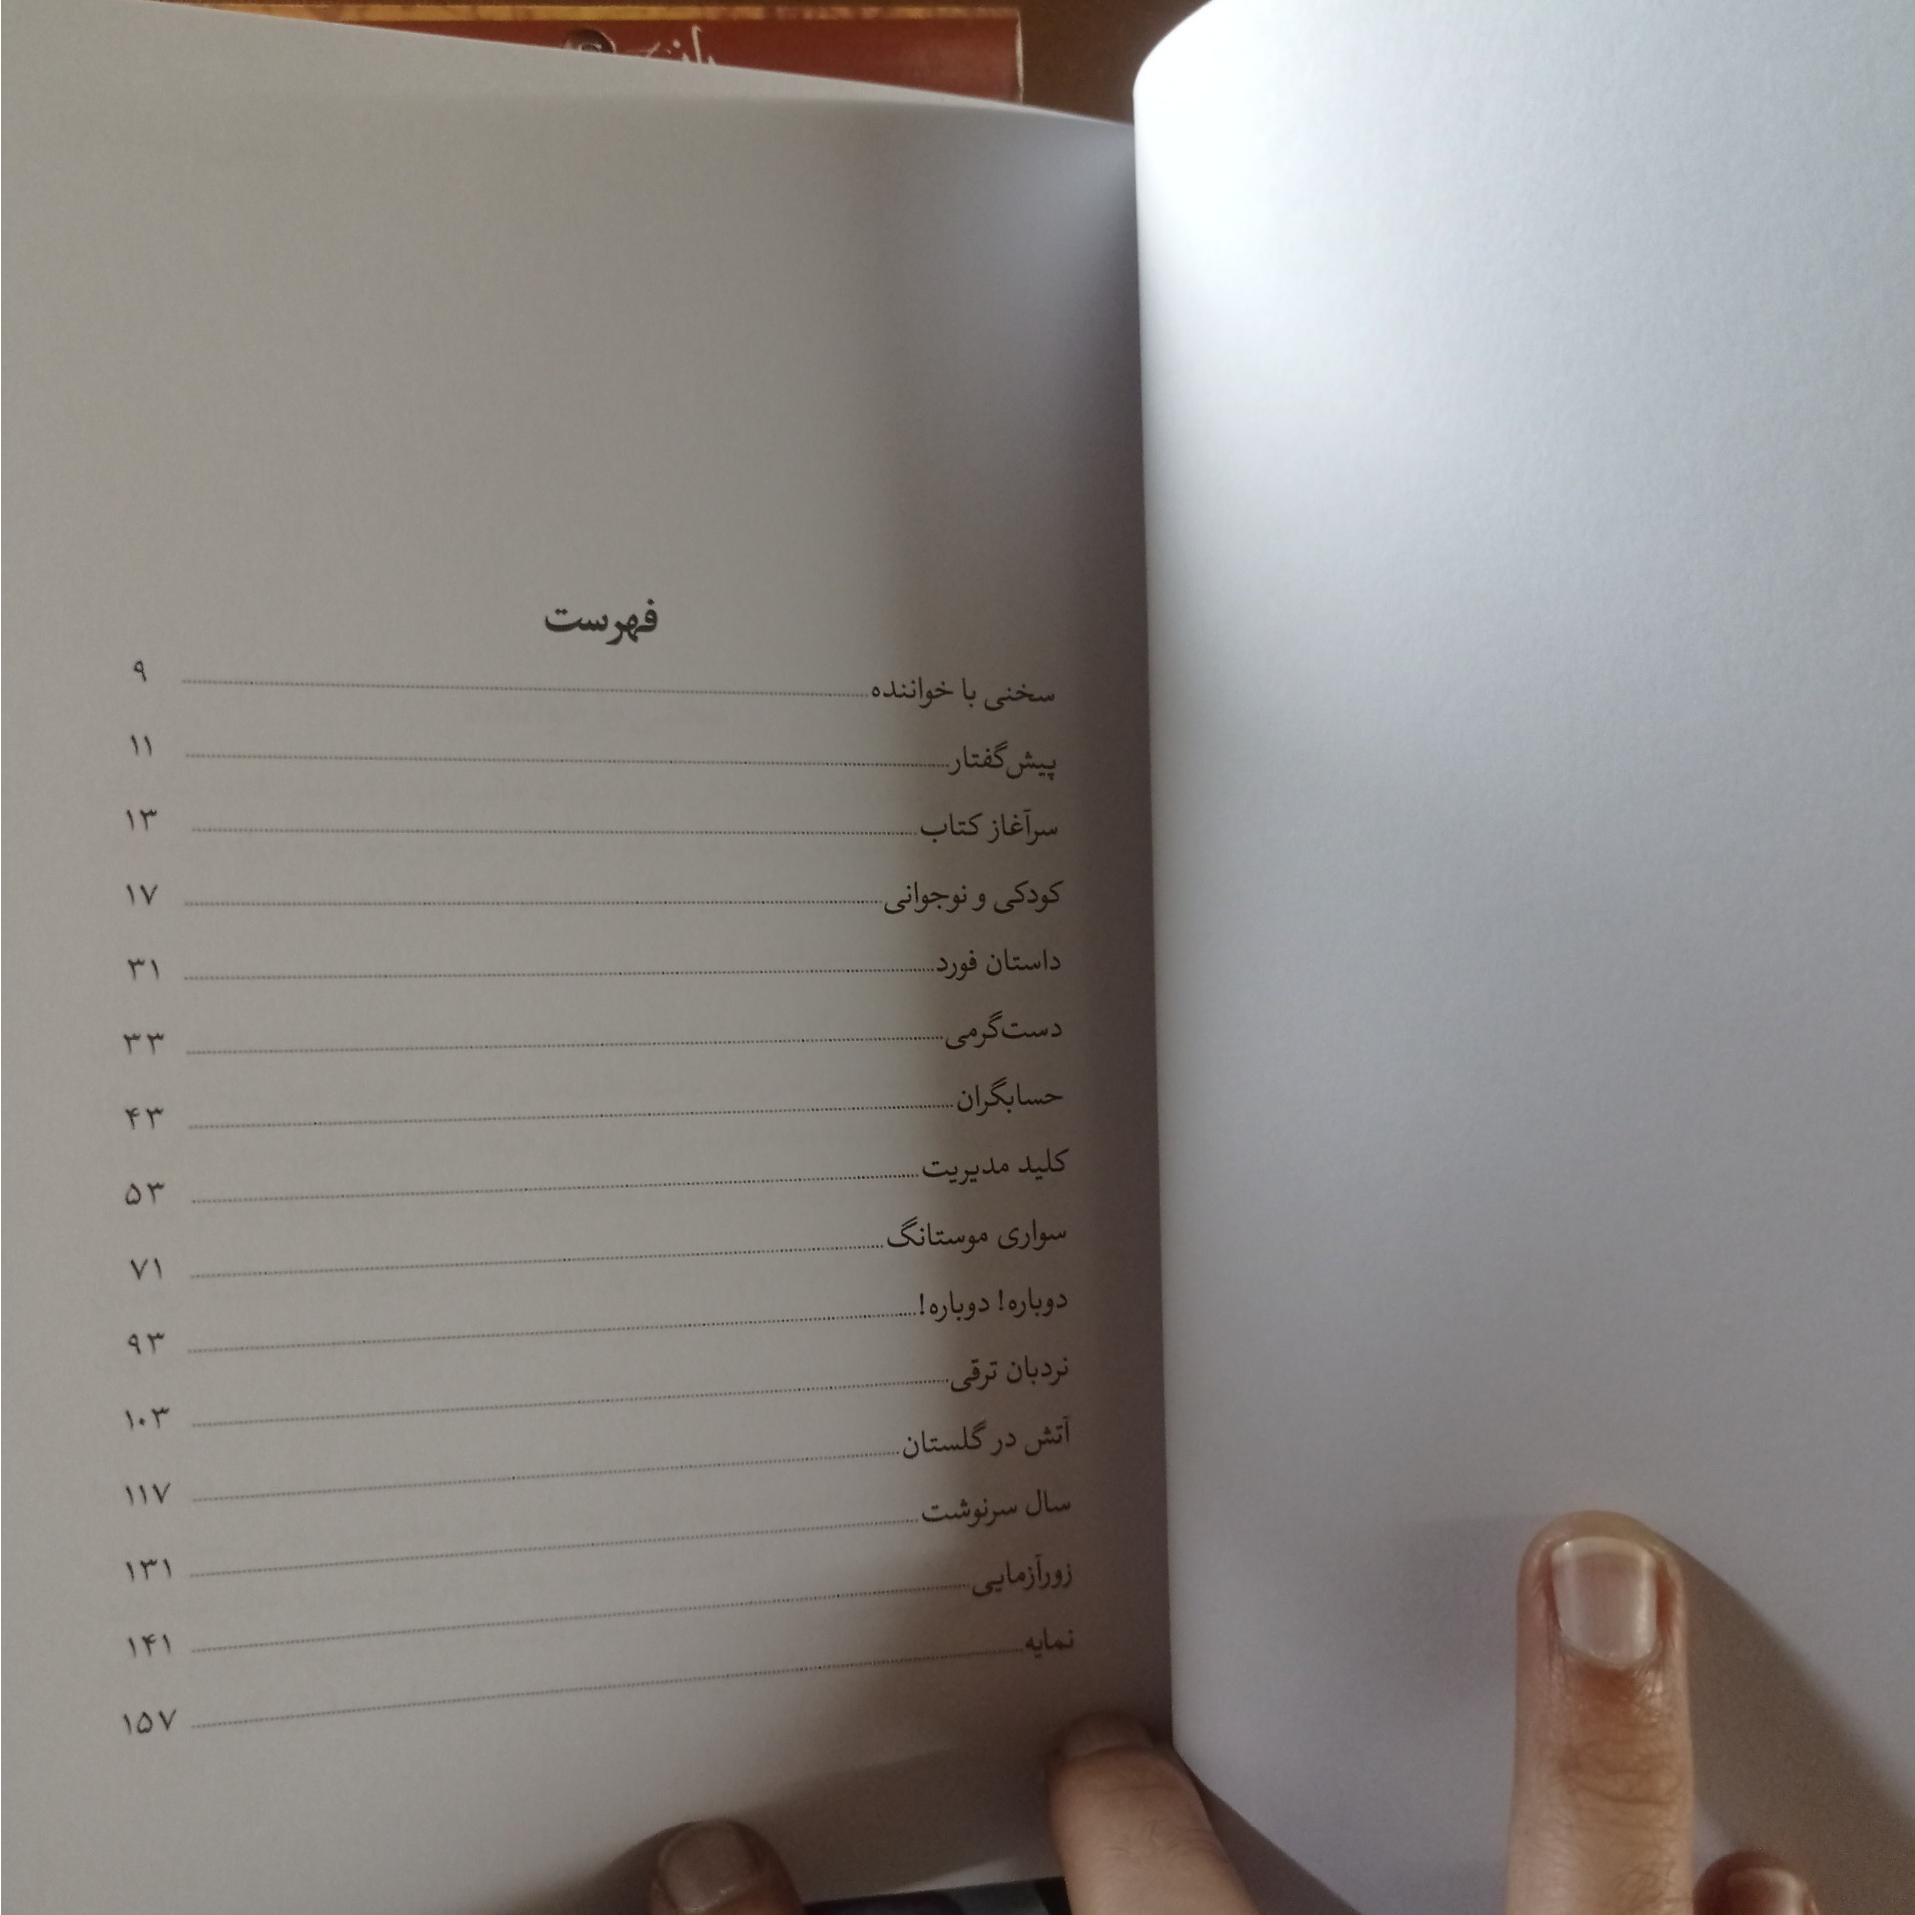 فهرست
سخنی با خواننده ۹
پیش‌گفتار ۱۱
سرآغاز کتاب ۱۳
کودکی و نوجوانی ۱۷
داستان فورد ۳۱
دست‌گرمی ۳۳
حسابگران ۴۳
کلید مدیریت ۵۳
سواری موستانگ ۷۱
دوباره! دوباره! ۹۳
نردبان ترقی ۱۰۳
آتش در گلستان ۱۱۷
سال سرنوشت ۱۳۱
زورآزمایی ۱۴۱
نمایه ۱۵۷